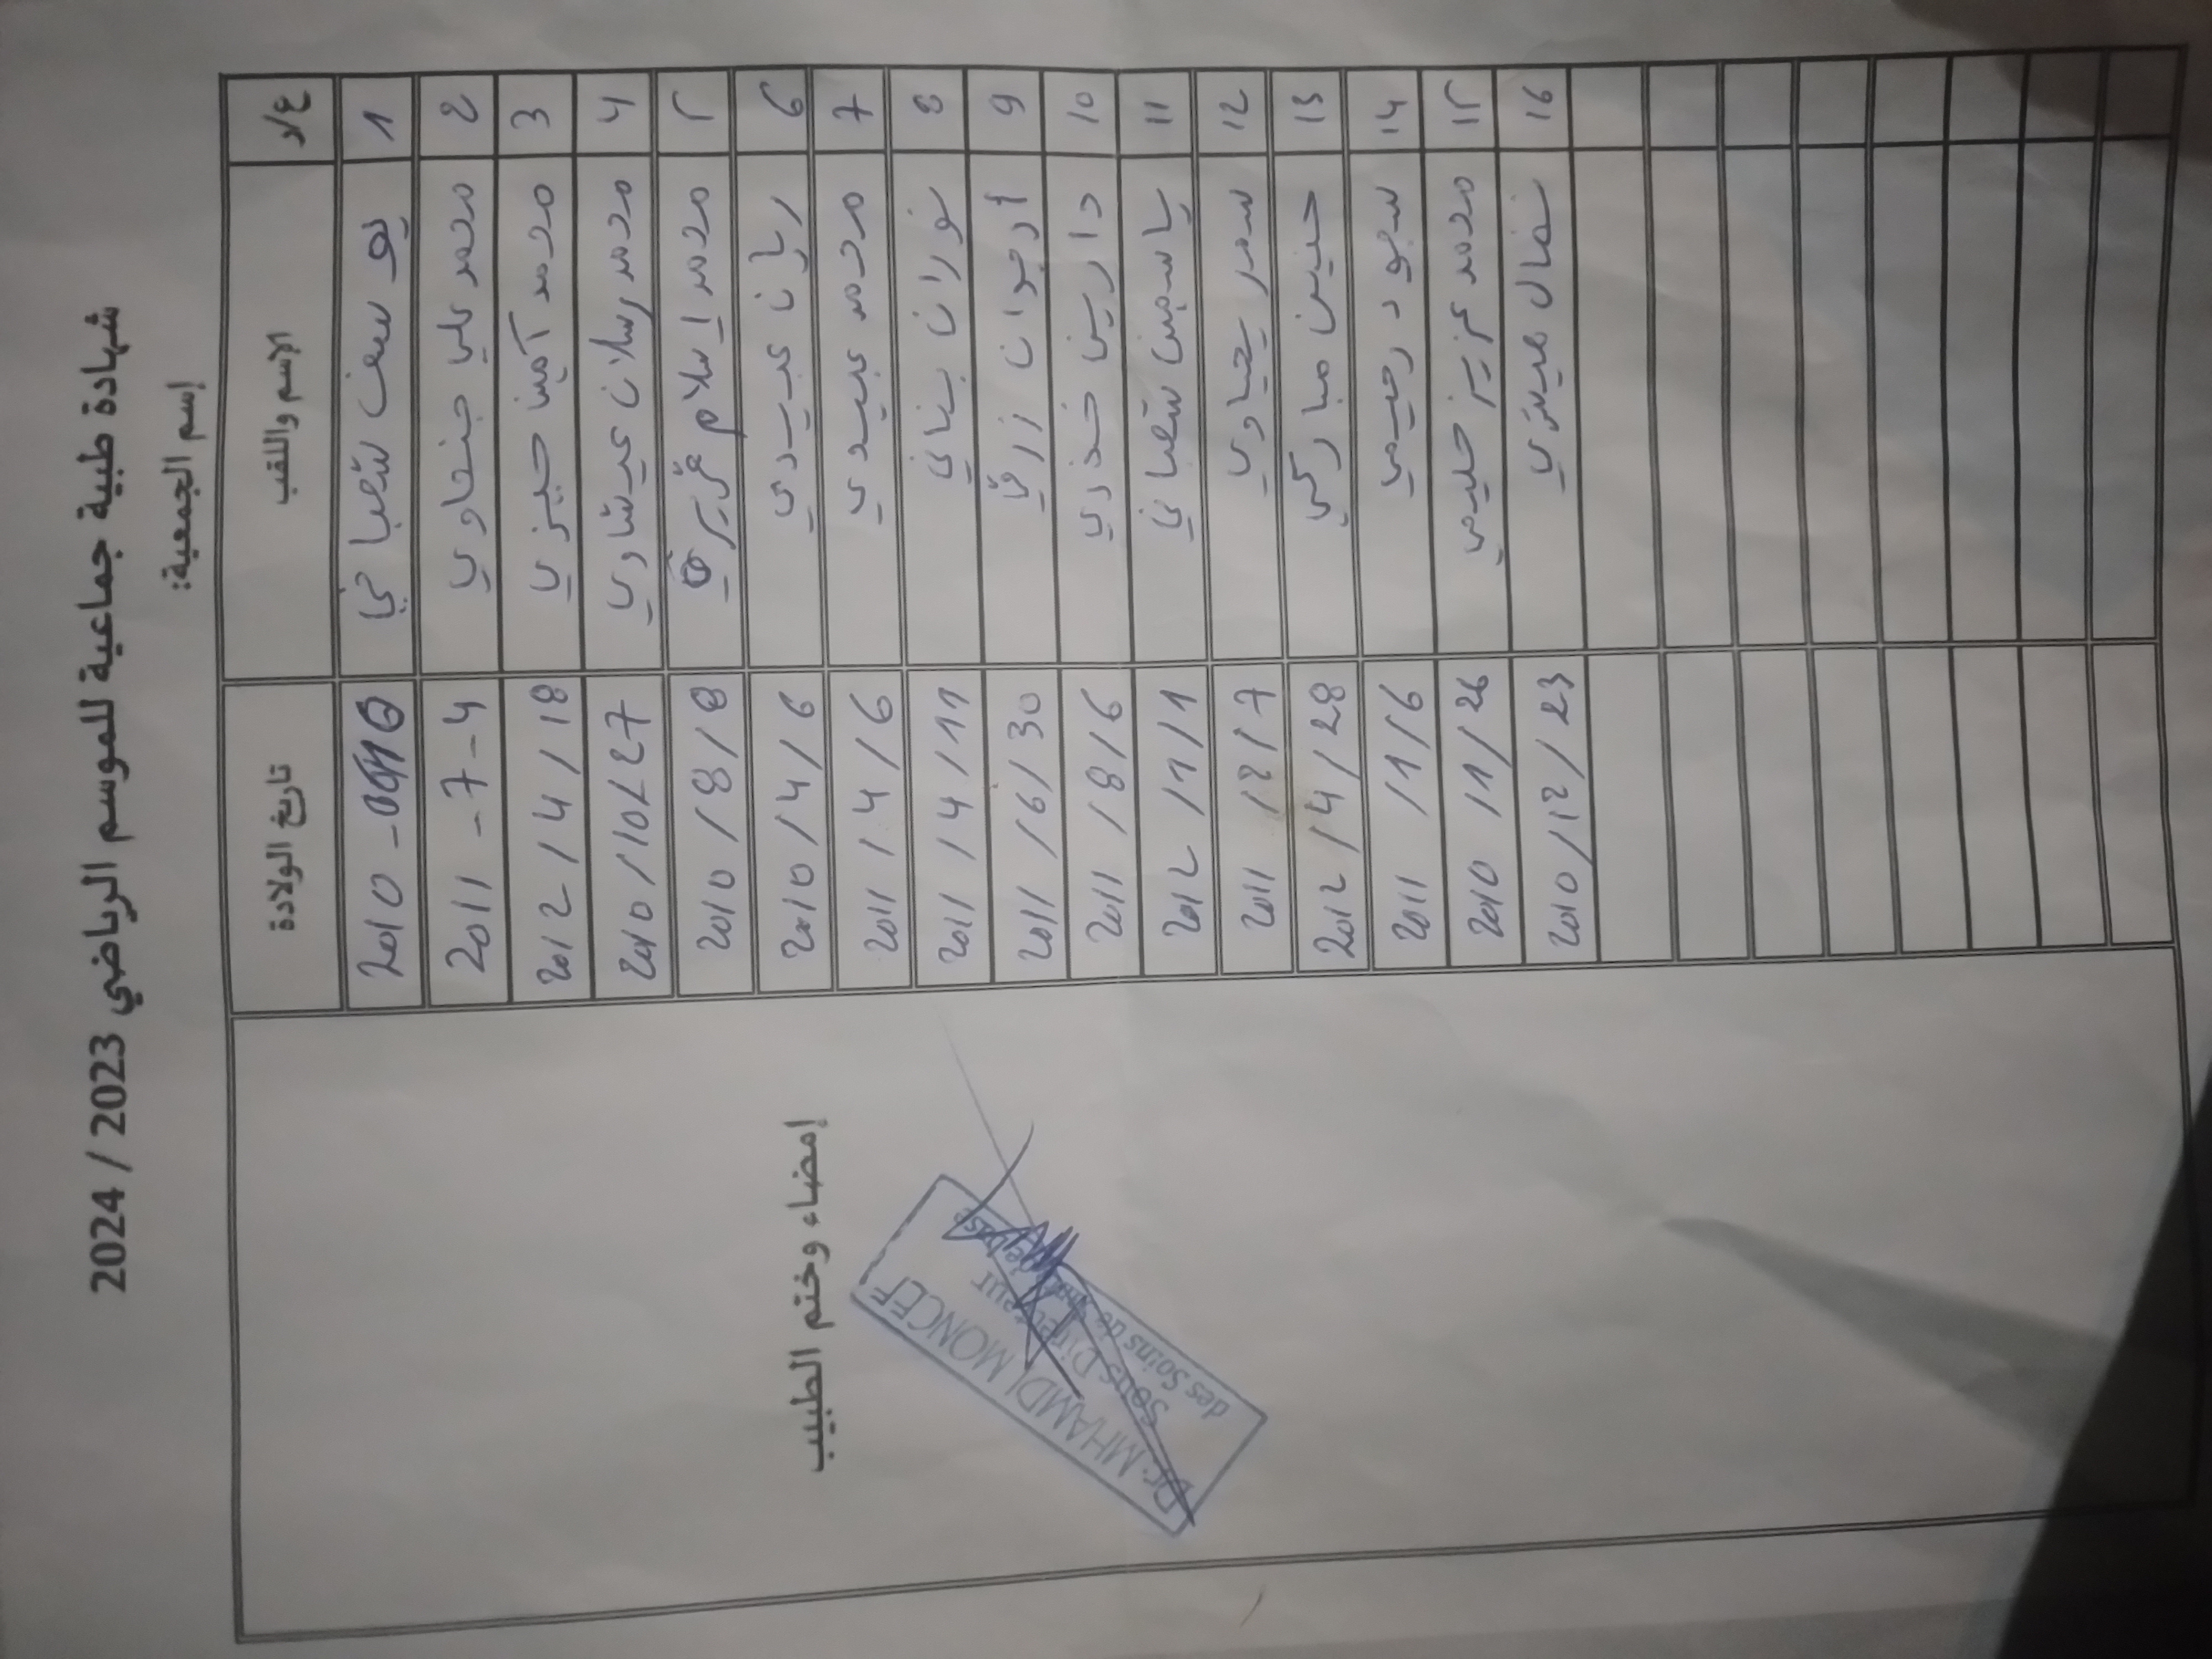 شهادة طبية جماعية للموسم الرياضي 2023 / 2024
إسم الجمعية:
ع/ر الإسم واللقب تاريخ الولادة
1 يوسف شعباني 2010 -
2 محمد علي جنحاوي 2011 - 7 - 4
3 محمد أمين حيزي 2012 / 4 / 18
4 محمد رسلان عيشاوي 2010 / 10 / 27
5 محمد اسلام 2010 / 8 / 8
6 ريان عبيدي 2010 / 4 / 6
7 محمد عبيدي 2011 / 4 / 6
8 نوران بناني 2011 / 4 / 11
9 أرجوان زرقي 2011 / 6 / 30
10 دارين خذري 2011 / 8 / 6
11 ياسمين شعباني 2012 / 1 / 1
12 سمر يحياوي 2011 / 2 / 7
13 حنين مباركي 2012 / 4 / 28
14 سجود رحيمي 2011 / 1 / 6
15 محمد عزيز حليمي 2010 / 1 / 26
16 نضال 2010 / 12 / 23
إمضاء وختم الطبيب
Dr. MHAMDI MONCEF
Sous Directeur
des Soins de Santé de base